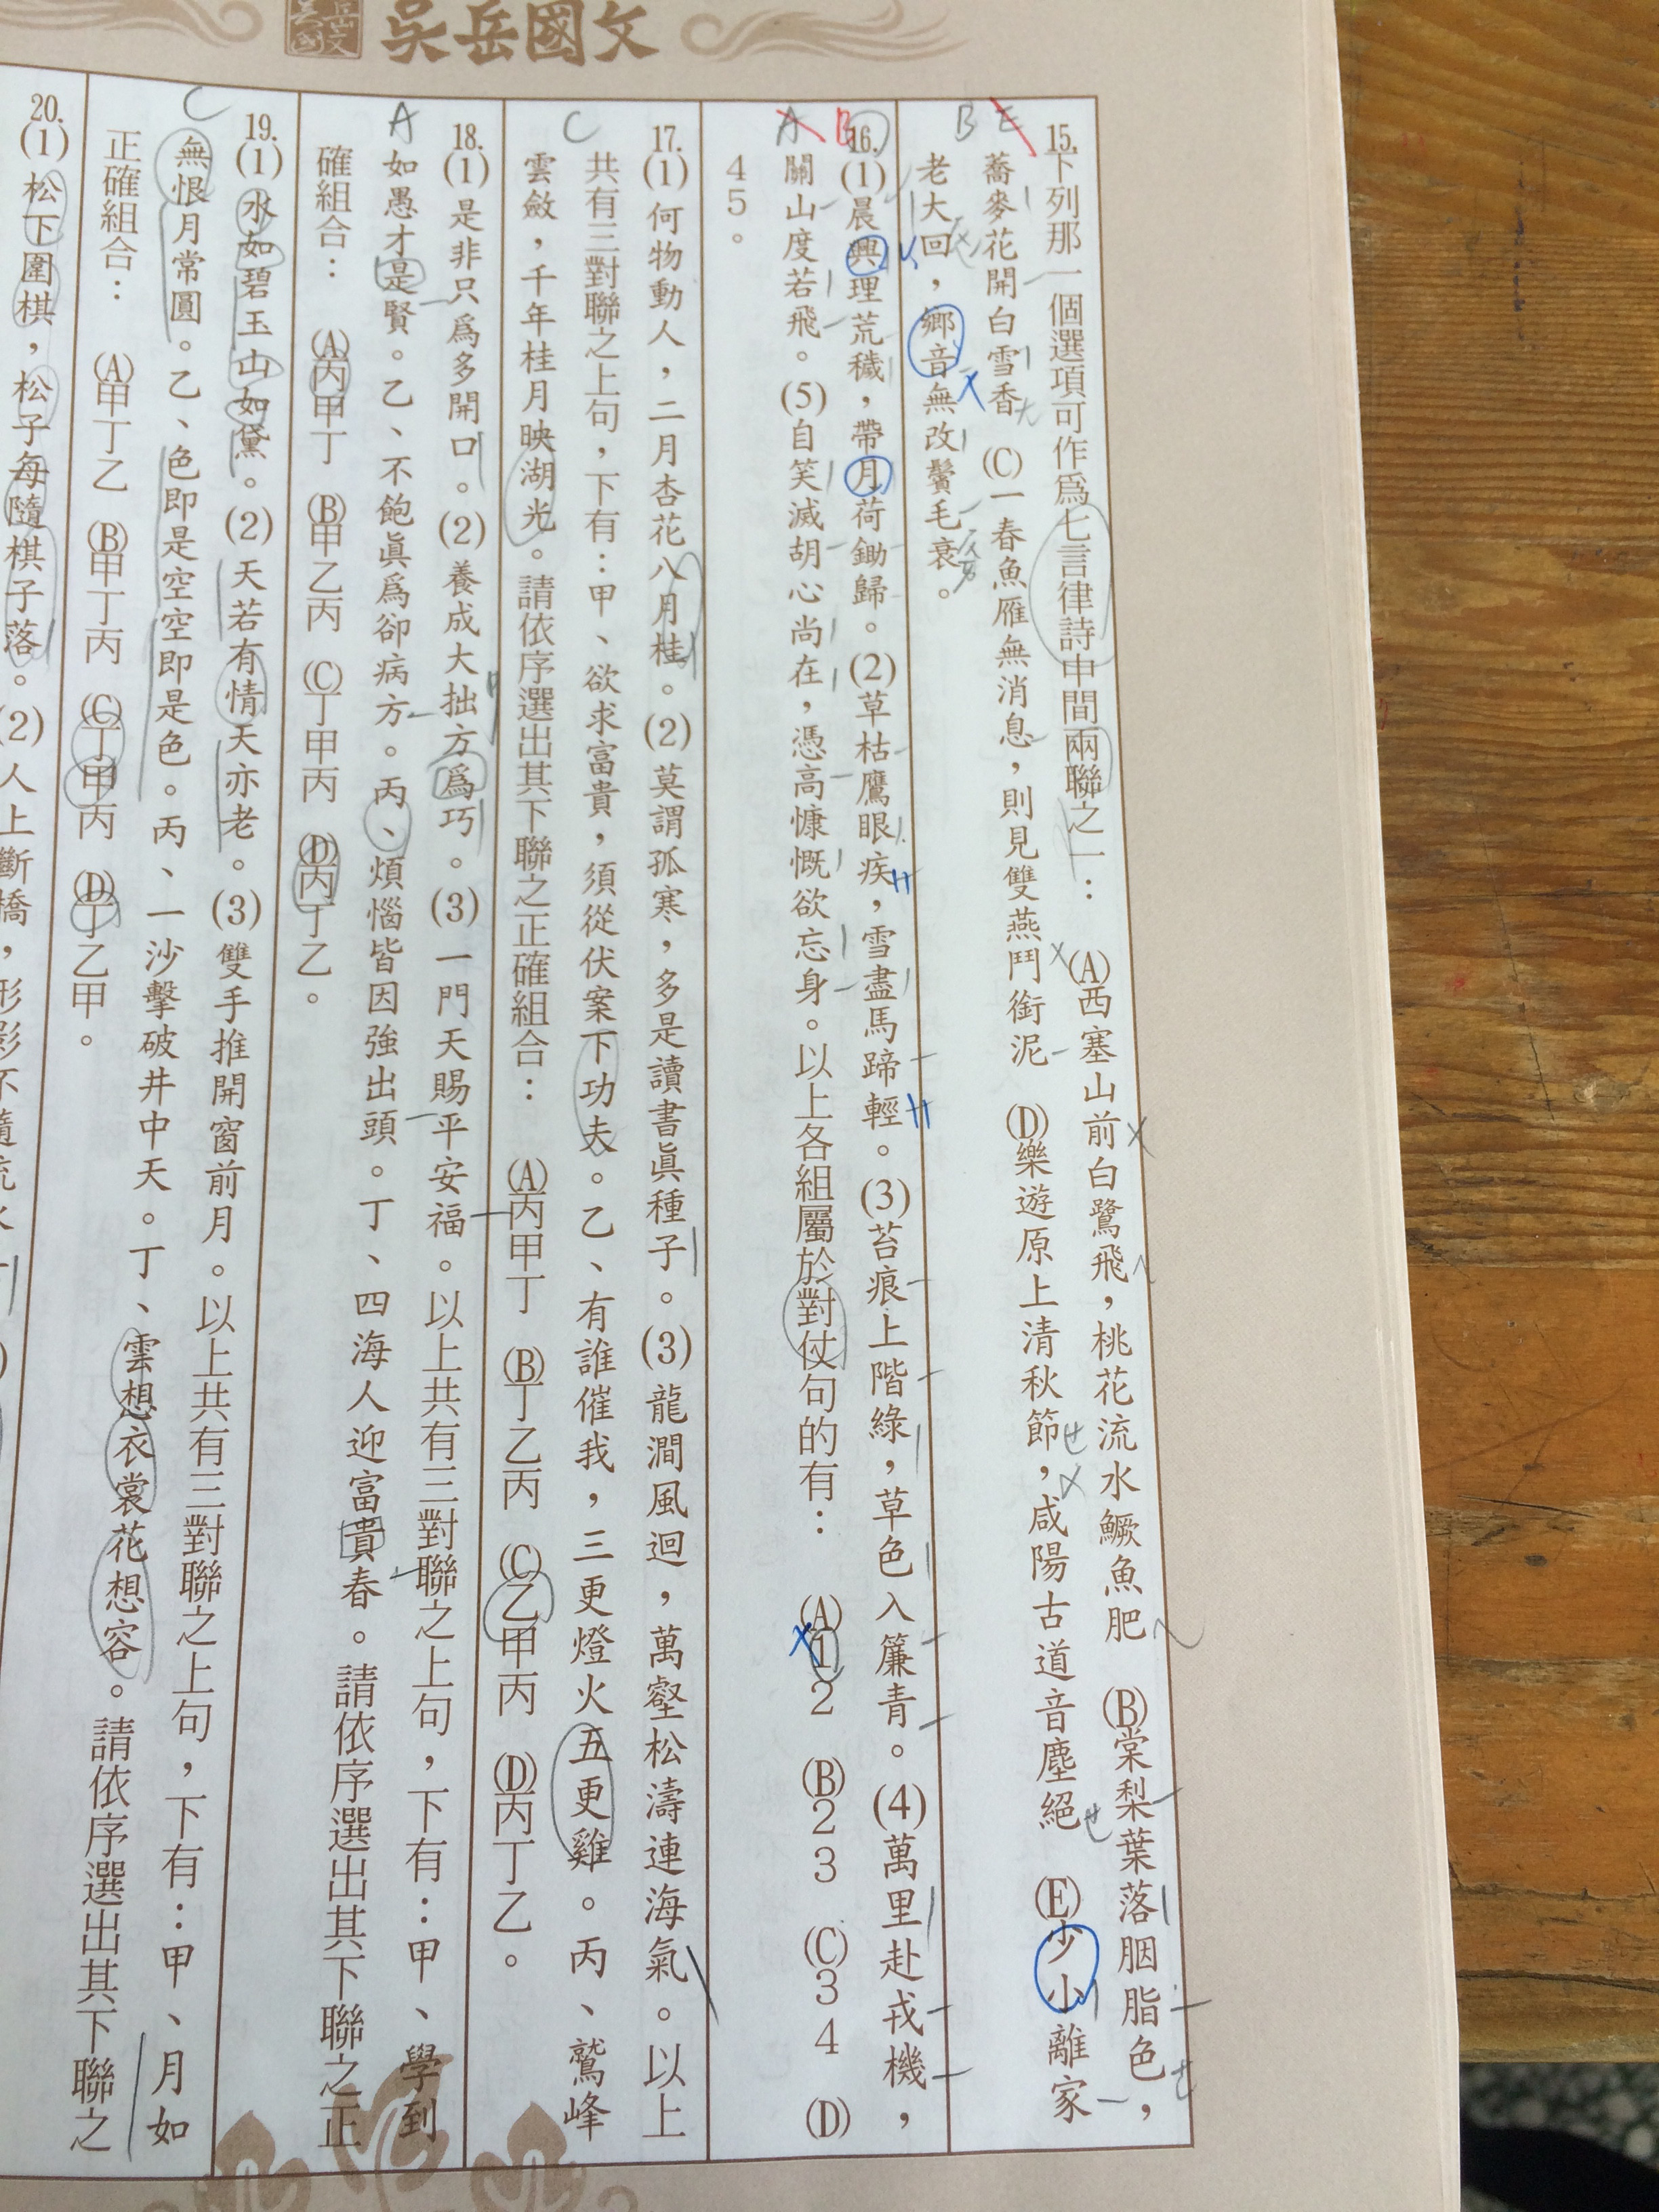 吳岳國文
15.下列那一個選項可作為七言律詩中間兩聯之一： (A)西塞山前白鷺飛，桃花流水鱖魚肥 (B)棠梨葉落胭脂色，
蕎麥花開白雪香 (C)一春魚雁無消息，則見雙燕鬥銜泥 (D)樂遊原上清秋節，咸陽古道音塵絕 (E)少小離家
老大回，鄉音無改鬢毛衰。
B E
16.(1)晨興理荒穢，帶月荷鋤歸。(2)草枯鷹眼疾，雪盡馬蹄輕。(3)苔痕上階綠，草色入簾青。(4)萬里赴戎機，
關山度若飛。(5)自笑滅胡心尚在，憑高慷慨欲忘身。以上各組屬於對仗句的有： (A)12 (B)23 (C)34 (D)
45。
A B
17.(1)何物動人，二月杏花八月桂。(2)莫謂孤寒，多是讀書眞種子。(3)龍澗風迴，萬壑松濤連海氣。以上
共有三對聯之上句，下有：甲、欲求富貴，須從伏案下功夫。乙、有誰催我，三更燈火五更雞。丙、鷲峰
雲斂，千年桂月映湖光。請依序選出其下聯之正確組合： (A)丙甲丁 (B)丁乙丙 (C)乙甲丙 (D)丙丁乙。
C
18.(1)是非只爲多開口。(2)養成大拙方爲巧。(3)一門天賜平安福。以上共有三對聯之上句，下有：甲、學到
如愚才是賢。乙、不飽眞爲卻病方。丙、煩惱皆因強出頭。丁、四海人迎富貴春。請依序選出其下聯之正
確組合： (A)丙甲丁 (B)甲乙丙 (C)丁甲丙 (D)丙丁乙。
A
19.(1)水如碧玉山如黛。(2)天若有情天亦老。(3)雙手推開窗前月。以上共有三對聯之上句，下有：甲、月如
無恨月常圓。乙、色即是空空即是色。丙、一沙擊破井中天。丁、雲想衣裳花想容。請依序選出其下聯之
正確組合： (A)甲丁乙 (B)甲丁丙 (C)丁甲丙 (D)丁乙甲。
C
20.(1)松下圍棋，松子每隨棋子落。(2)人上斷橋，形影不隨流水